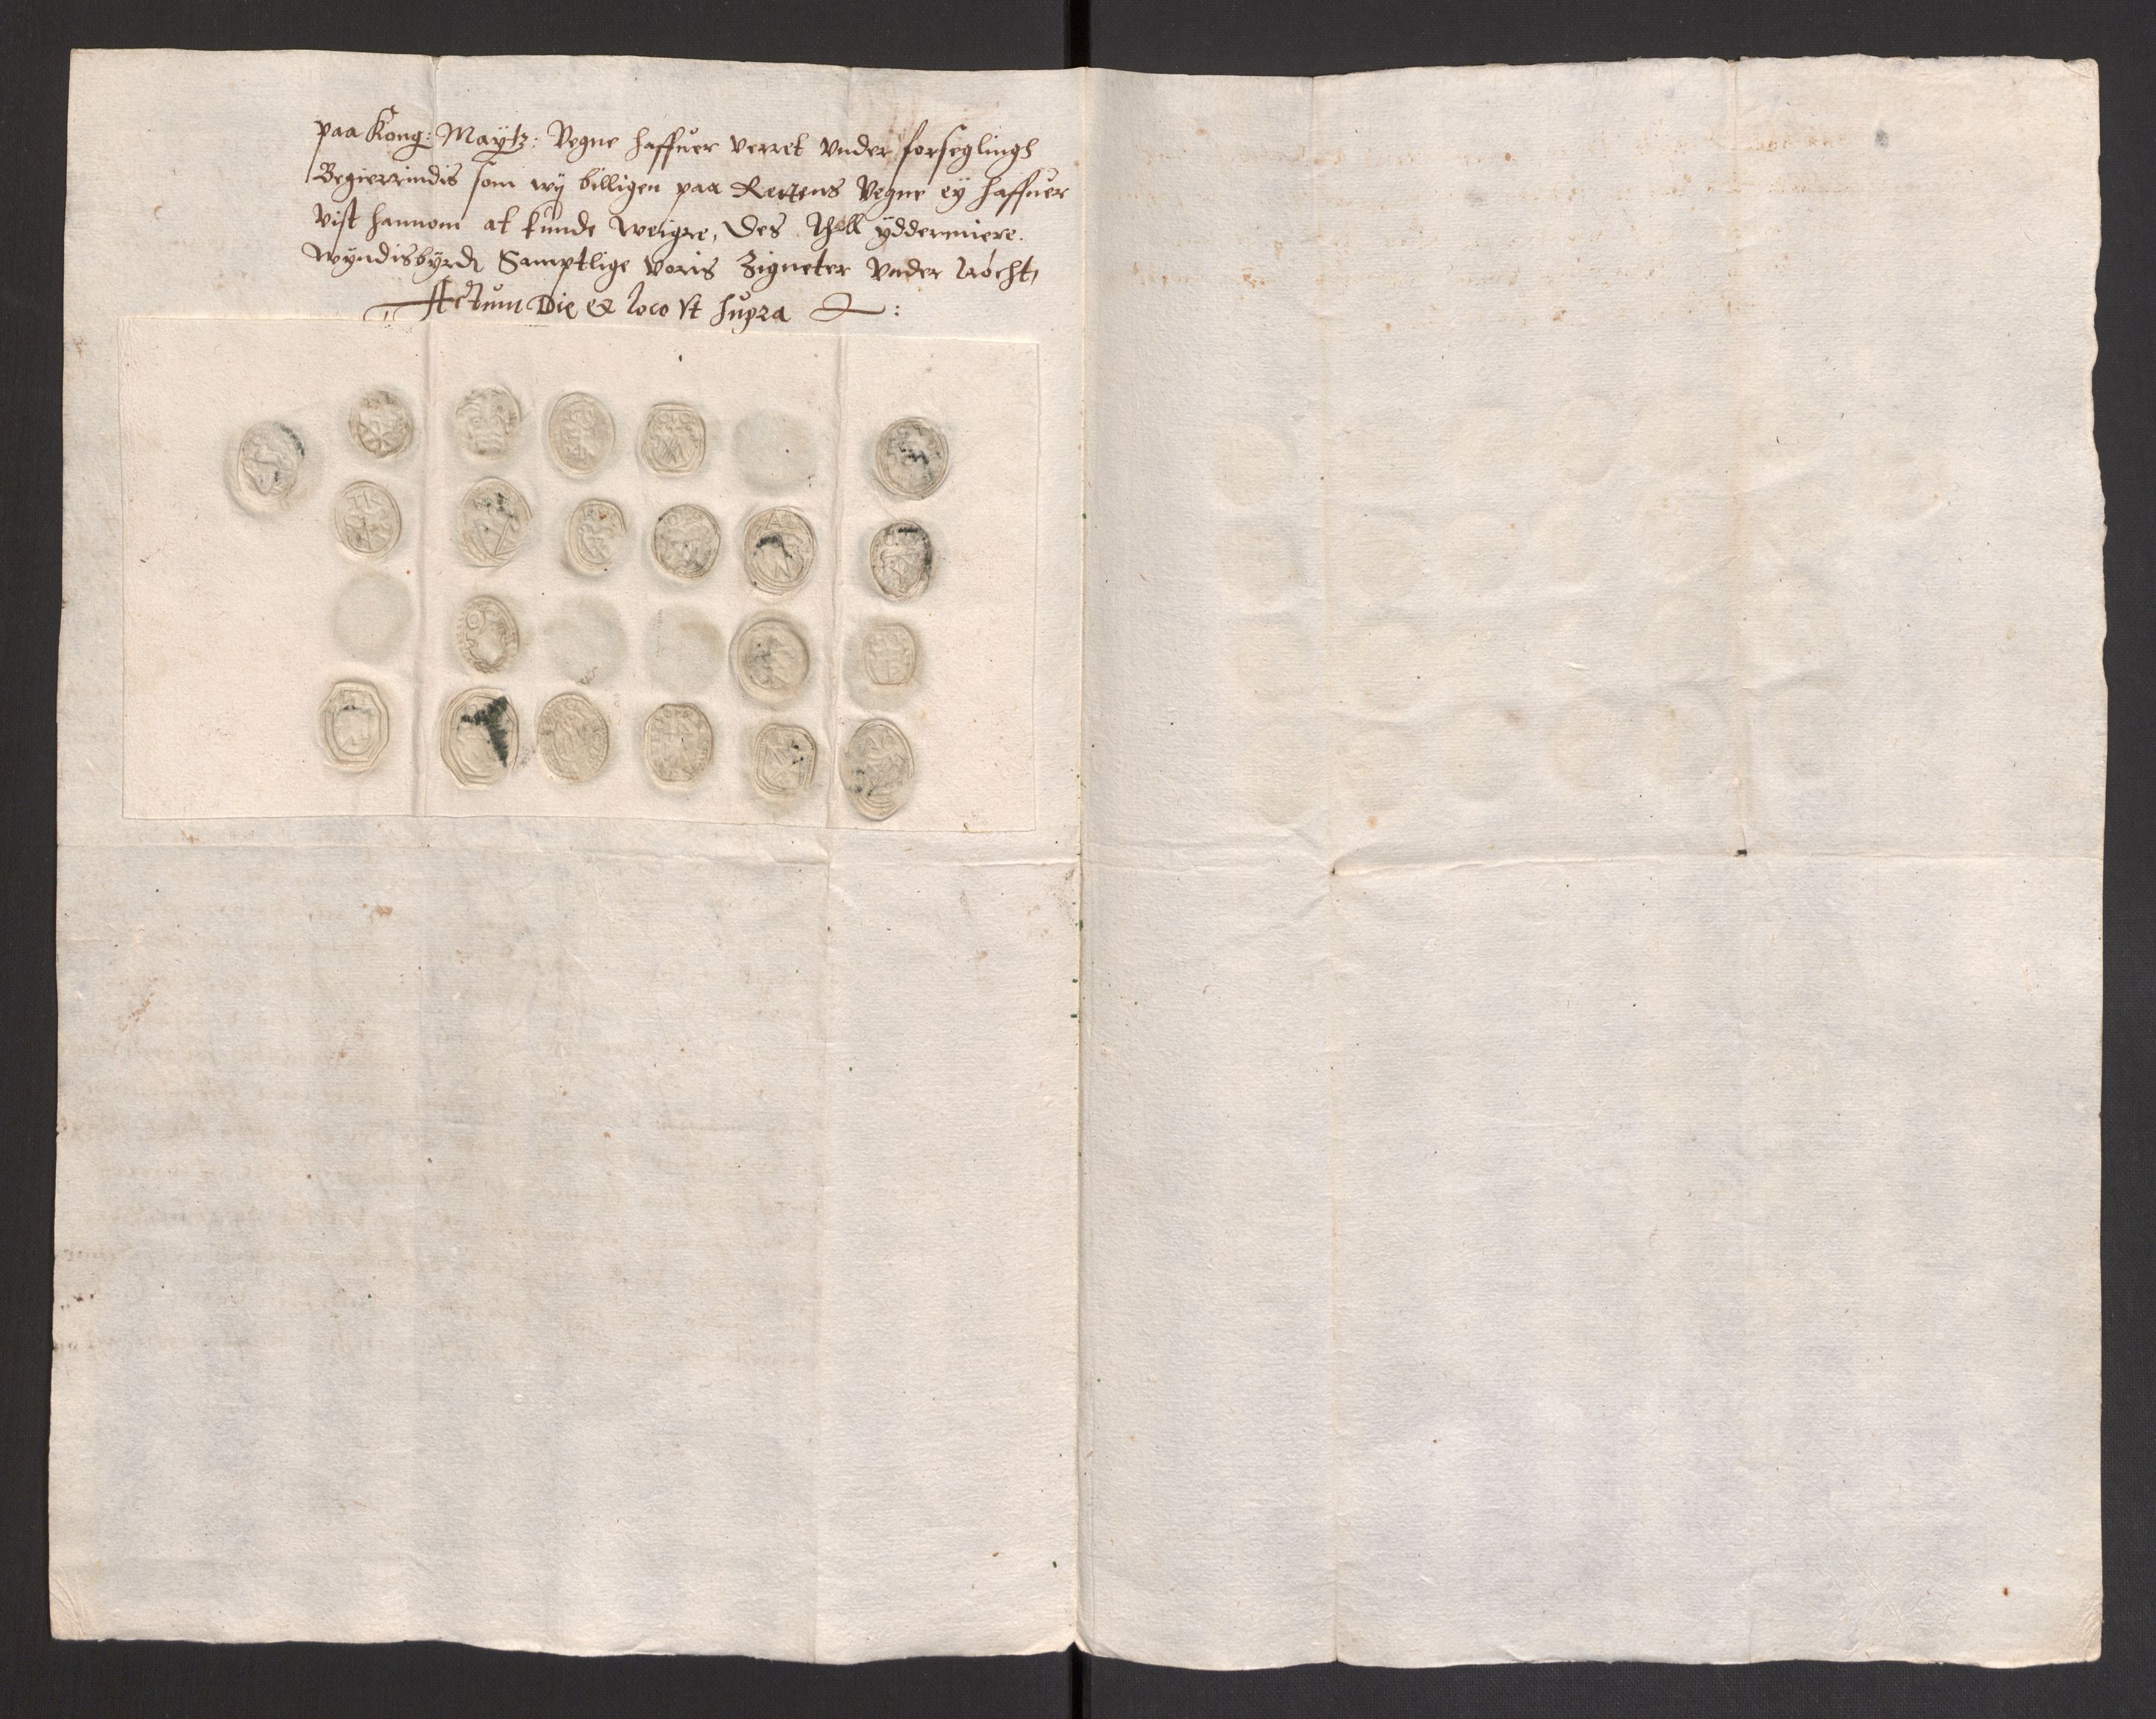 paa Kong: Maÿtz: Vegne haffuer verret vnder forseglingh
Begierrindis som wÿ billigen paa Rettens Vegne eÿ haffuer
vist hannom at kunde weigre, Des thill ÿddermiere
wÿndisbÿrd Samptlige Voris Zigneter vnder trÿcht,
Actum Die & loco Vt supra